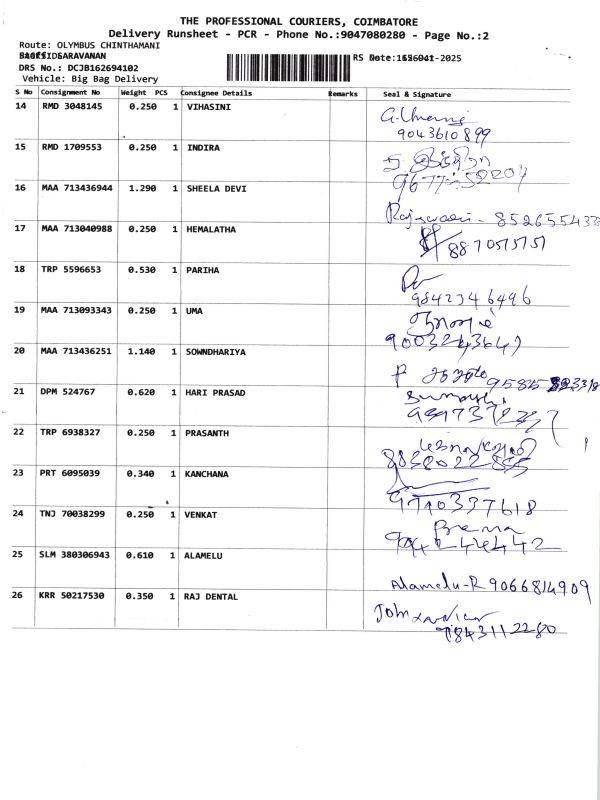 THE PROFESSIONAL COURIERS, COIMBATORE
Delivery Runsheet - PCR - Phone No.:9047080280 - Page No.:2
Route: OLYMBUS CHINTHAMANI
SARAVANAN
DRS No.: DCJB162694102
Vehicle: Big Bag Delivery
S No Consignment No Weight PCS Consignee Details Remarks Seal & Signature
14 RMD 3048145 0.250 1 VIHASINI
9043610899
15 RMD 1709553 0.250 1 INDIRA
16 MAA 713436944 1.290 1 SHEELA DEVI
Rajeswari - 8526554333
17 MAA 713040988 0.250 1 HEMALATHA
8870575751
18 TRP 5596653 0.530 1 PARIHA
9842346496
19 MAA 713093343 0.250 1 UMA
9003243647
20 MAA 713436251 1.140 1 SOWNDHARIYA
21 DPM 524767 0.620 1 HARI PRASAD
22 TRP 6938327 0.250 1 PRASANTH
23 PRT 6095039 0.340 1 KANCHANA
9710337618
24 TNJ 70038299 0.250 1 VENKAT
Prema
25 SLM 380306943 0.610 1 ALAMELU
Alamelu-R 9066814909
26 KRR 50217530 0.350 1 RAJ DENTAL
John Xavier
7843112280